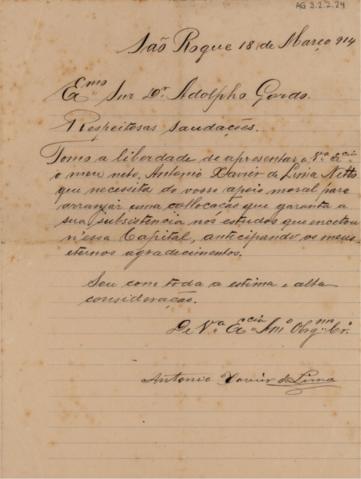 AG 3.2.2.24
São Roque 18 de Março 914
Exmo Snr Dr Adolpho Gordo.
Respeitosas saudações.
Tomo a liberdade de apresentar a Va Excia
o meu neto, Antonio Xavier de Lima Netto
que necessita do vosso apoio moral para
arranjar uma collocação que garanta a
sua subsistencia nos estudos que encetou
n'essa Capital, anticipando os meus
eternos agradecimentos.
Sou com toda a estima e alta
consideração.
De Va Excia Amo Obrgmo Cro
Antonio Xavier de Lima